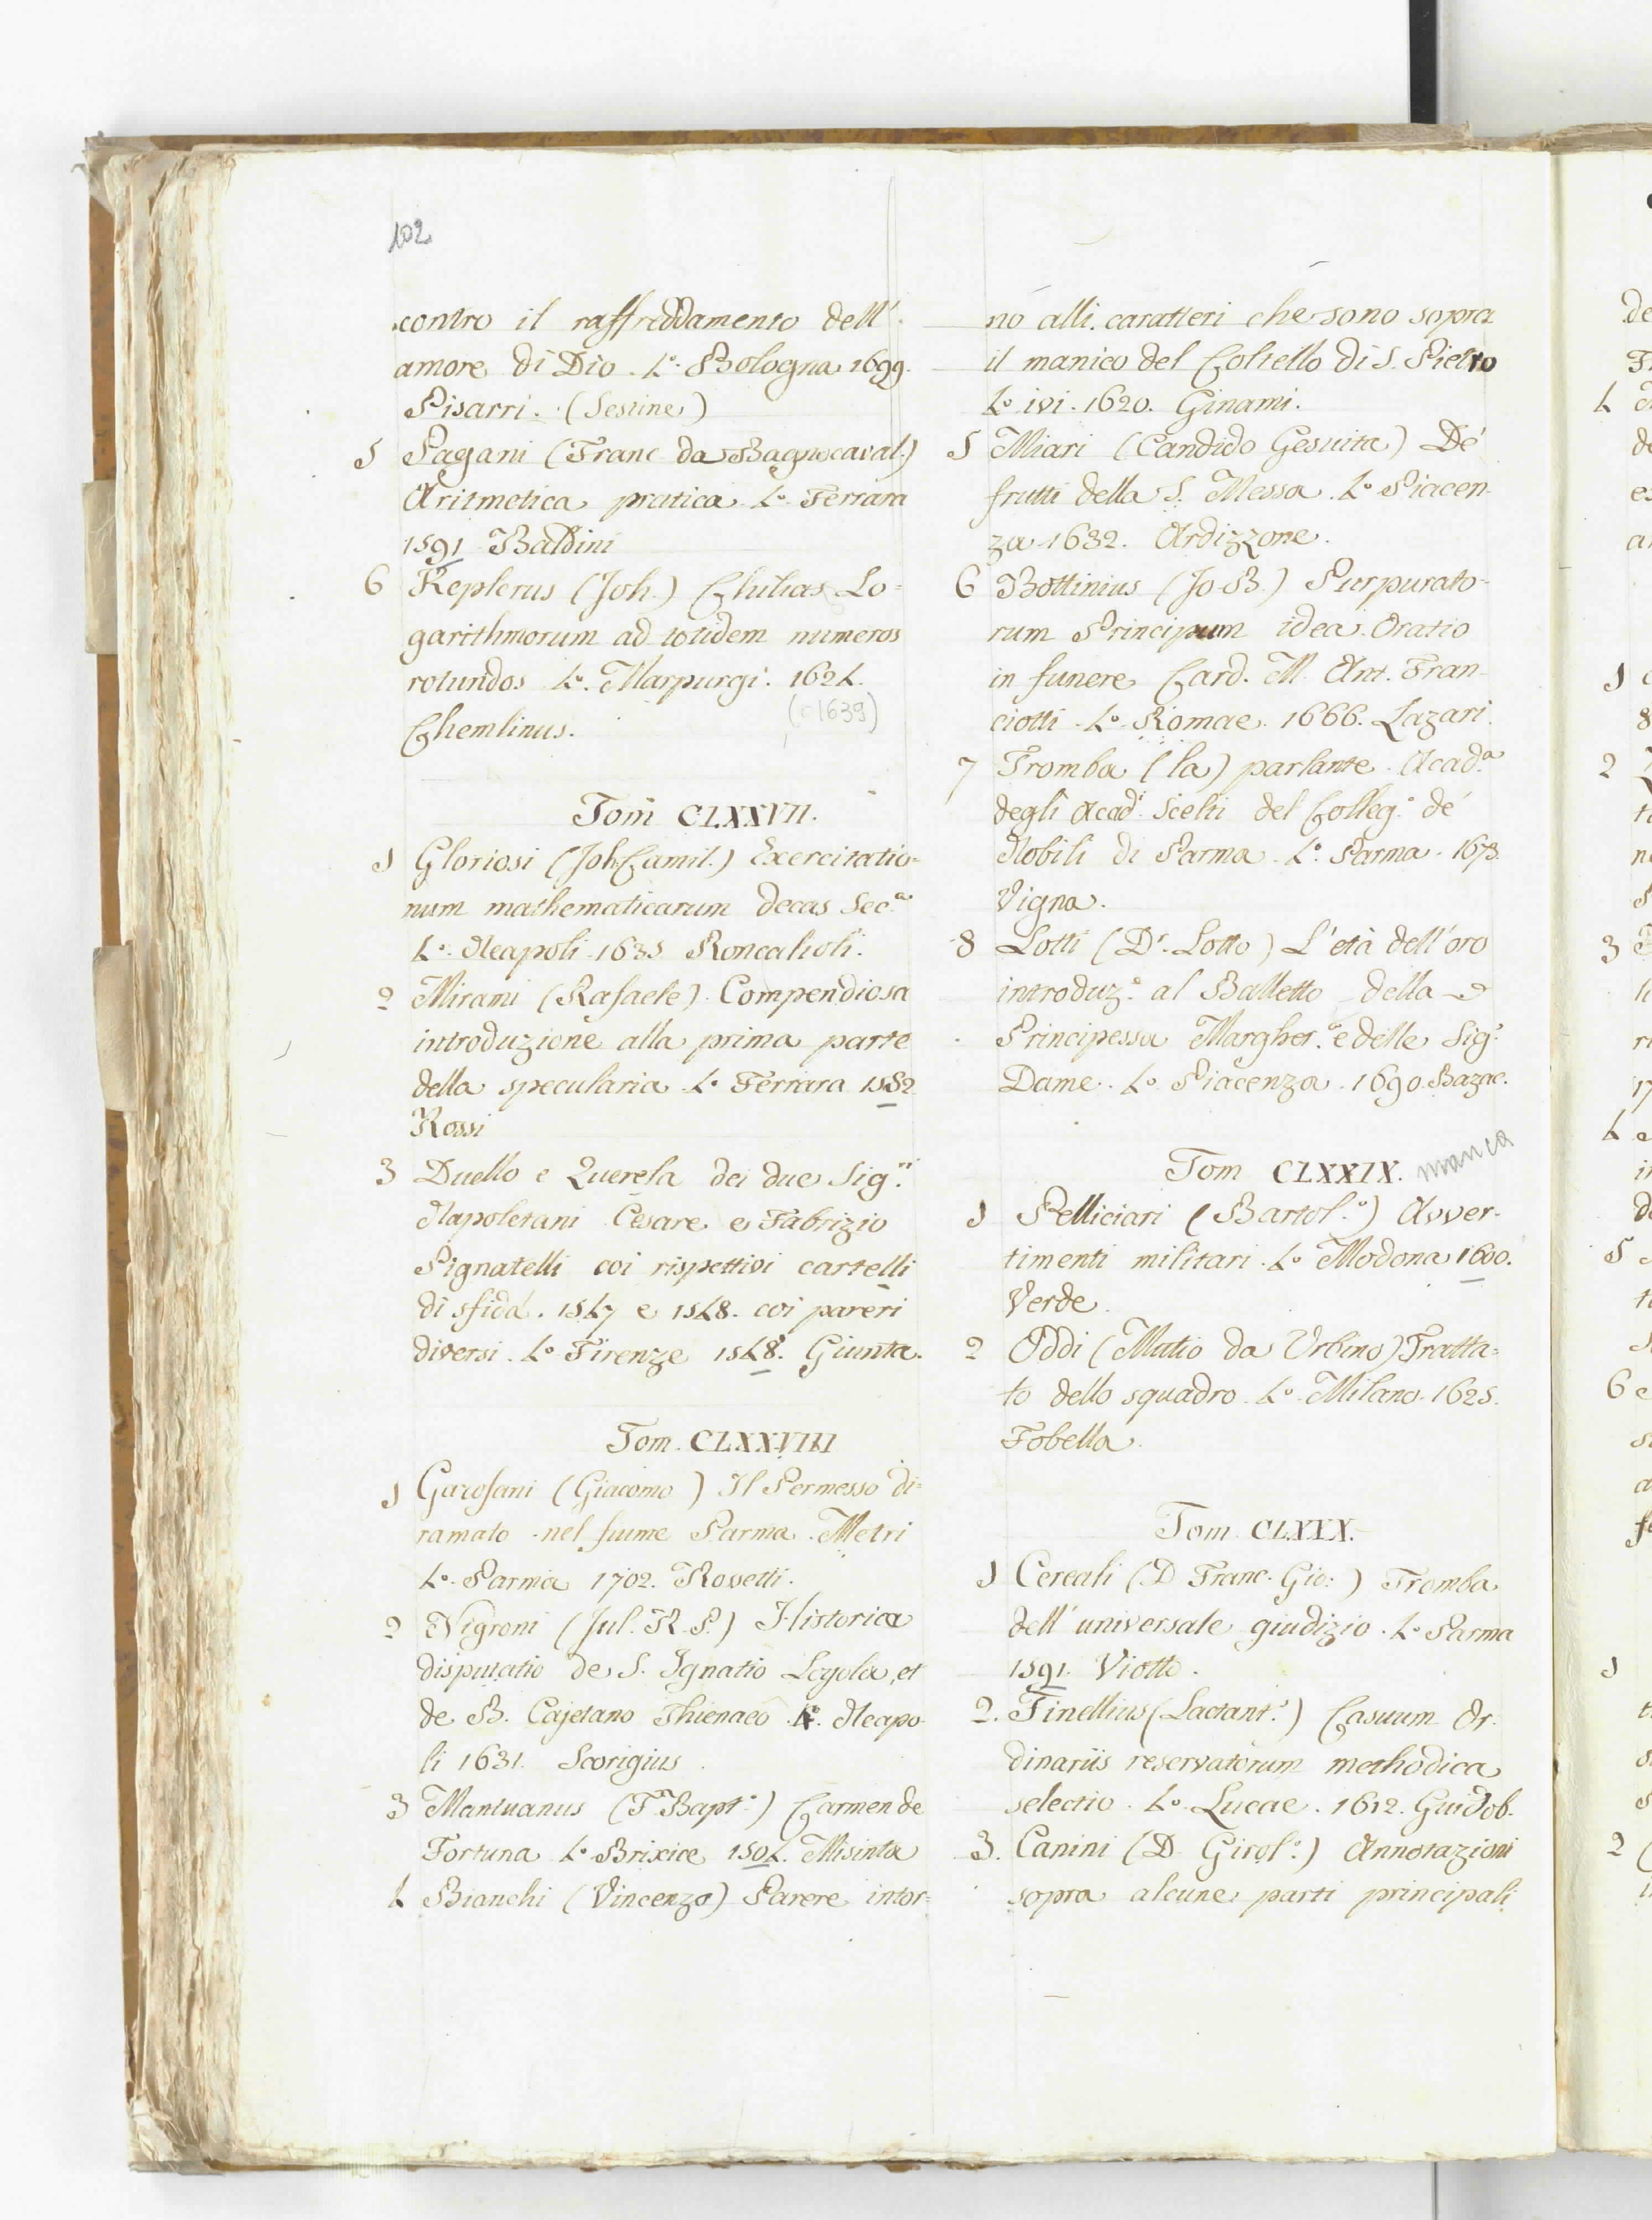 102
contro il raffreddamento dell'
amore di Dio. 4.º Bologna 1699.
Pisarri. (Sestine)
5 Pagani (Franc da Bagnocaval.)
Aritmetica pratica 4.º Ferrara
1591 Baldini
6 Keplerus (Joh.) Chilias Lo=
garithmorum ad totidem numeros
rotundos 4.º Marpurgi. 1624.
(o 1639)
Chemlinus.
Tom CLXXVII.
1 Gloriosi (Joh Camil.) Exercitatio=
num mathematicarum decas Sec.ª
4.º Neapoli 1635 Roncalioli.
2 Mirami (Rafaele) Compendiosa
introduzione alla prima parte
della specularia 4.º Ferrara 1582
Rossi
3 Duello e Querela dei due Sig.ri
Napoletani Cesare e Fabrizio
Pignatelli coi rispettivi cartelli
di sfida. 1547 e 1548. coi pareri
diversi. 4.º Firenze 1548. Giunta.
Tom. CLXXVIII
1 Garofani (Giacomo) Il Permesso di=
ramato nel fiume Parma. Metri
4.º Parma 1702. Rossetti.
2 Nigroni (Jul. R. P.) Historica
disputatio de S. Ignatio Loyola, et
de B. Cajetano Thienaeo 4.º Neapo-
li 1631. Scorigius
3 Mantuanus (F. Bapt.ª) Carmen de
Fortuna 4.º Brixiae 1504. Misinta
4 Bianchi (Vincenzo) Parere intor=
no alli caratteri che sono sopra
il manico del Coltello di S. Pietro
4.º ivi. 1620. Ginami.
5 Miari (Candido Gesuita) De'
frutti della S. Messa. 4.º Piacen-
za 1632. Ardizzone.
6 Bottinius (Jo. B.) Purpurato-
rum Principum idea. Oratio
in funere Card. M. Ant. Fran-
ciotti 4.º Romae. 1666. Lazari.
7 Tromba (la) parlante. Acad.ª
degli Acad.i Scelti del Colleg.º de'
Nobili di Parma. 4.º Parma. 1673.
Vigna.
8 Lotti (D.r Lotto) L'età dell'oro
introduz.e al Balletto della
Principessa Margher.ª e delle Sig.e
Dame. 4.º Piacenza. 1690. Bazac.
Tom CLXXIX. manca
1 Pelliciari (Bartol.º) Avver-
timenti militari. 4.º Modona 1600.
Verde.
2 Oddi (Mutio da Urbino) Tratta=
to dello squadro. 4.º Milano. 1625.
Fobella
Tom. CLXXX.
1 Cereali (D. Franc. Gio:) Tromba
dell' universale giudizio. 4.º Parma
1591. Viotto.
2. Finellius (Lactant.s) Casuum Or-
dinariis reservatorum methodica
selectio. 4.º Lucae. 1612. Guidob.
3. Canini (D. Girol.º) Annotazioni
sopra alcune parti principali